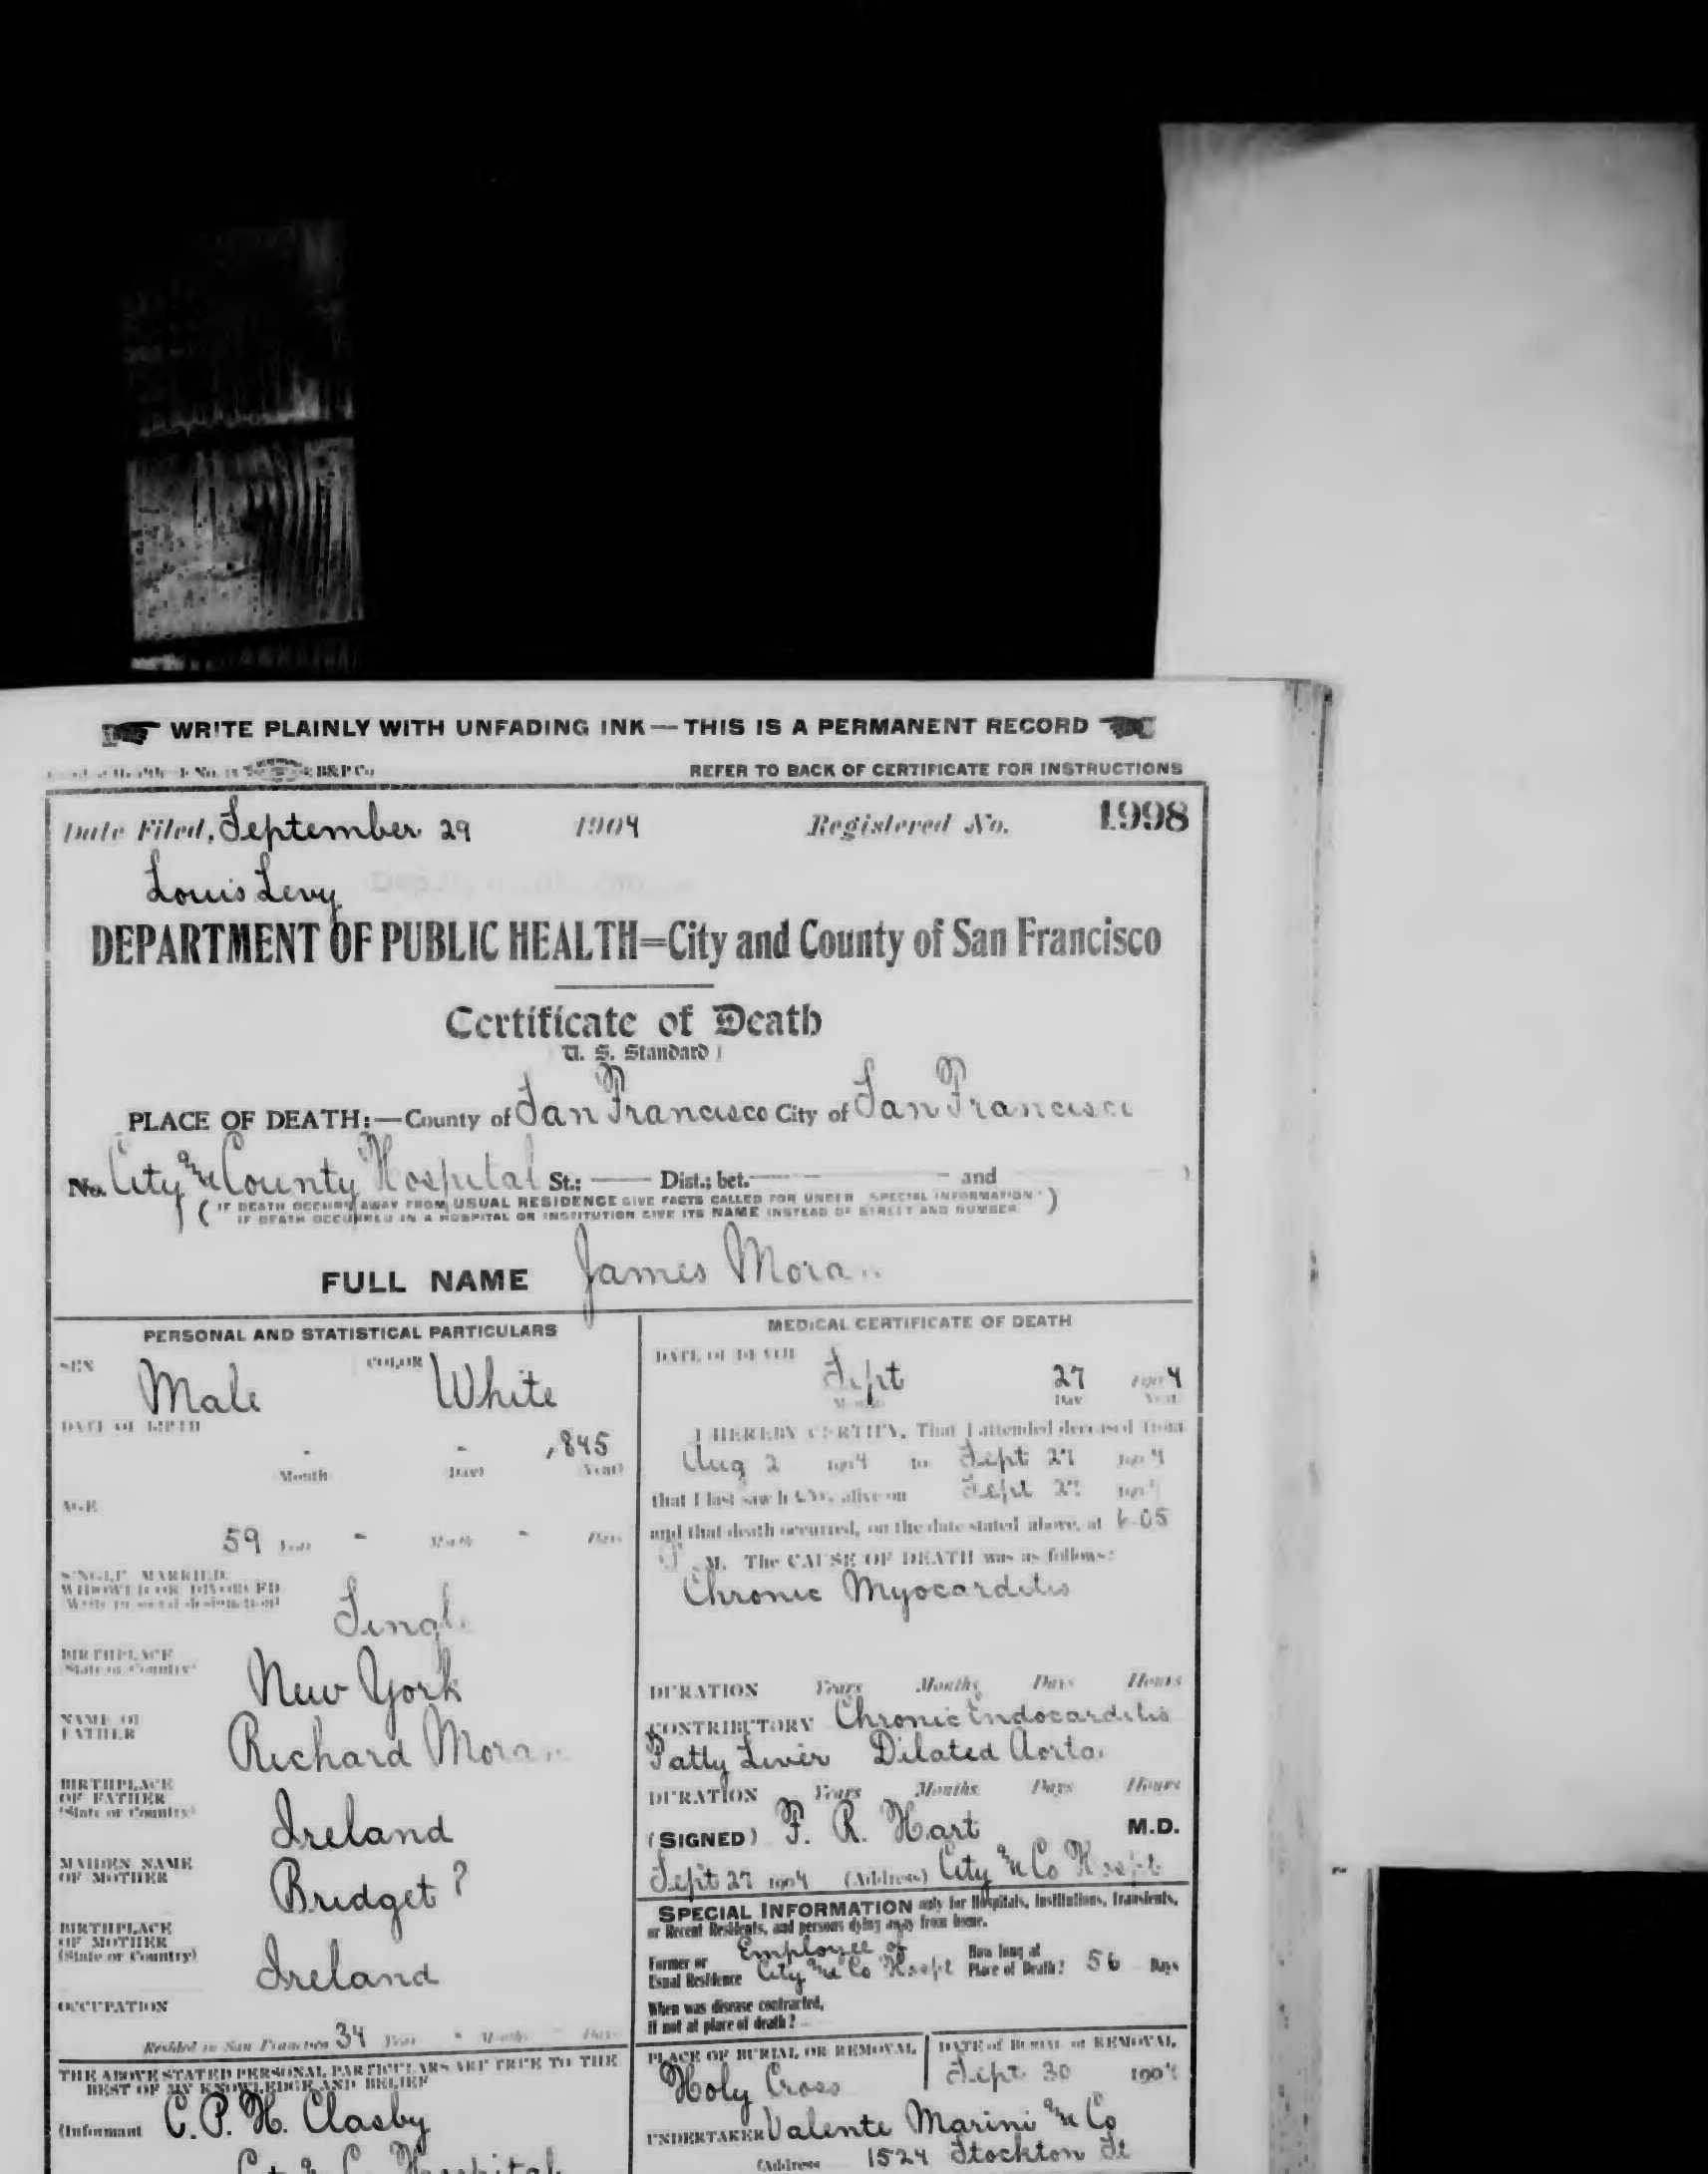 WRITE PLAINLY WITH UNFADING INK — THIS IS A PERMANENT RECORD
B&P Co
REFER TO BACK OF CERTIFICATE FOR INSTRUCTIONS
Date Filed, September 29 1904 Registered No. 1998
Louis Levy
DEPARTMENT OF PUBLIC HEALTH=City and County of San Francisco
Certificate of Death
U. S. Standard)
PLACE OF DEATH:—County of San Francisco City of San Francisco
No. City and County Hospital St.; —— Dist.; bet. —— and
(IF DEATH OCCURS AWAY FROM USUAL RESIDENCE GIVE FACTS CALLED FOR UNDER SPECIAL INFORMATION"
IF DEATH OCCURRED IN A HOSPITAL OR INSTITUTION GIVE ITS NAME INSTEAD OF STREET AND NUMBER)
FULL NAME James Moran
PERSONAL AND STATISTICAL PARTICULARS
SEX Male COLOR White
DATE OF BIRTH
- - 1845
Month Day Year
AGE
59 Years - Months - Days
SINGLE, MARRIED,
WIDOWED OR DIVORCED
(Write in social designation)
Single
BIRTHPLACE
(State or Country)
New York
NAME OF
FATHER
Richard Moran
BIRTHPLACE
OF FATHER
(State or Country)
Ireland
MAIDEN NAME
OF MOTHER
Bridget ?
BIRTHPLACE
OF MOTHER
(State or Country)
Ireland
OCCUPATION
Resided in San Francisco 34 Years - Months Days
THE ABOVE STATED PERSONAL PARTICULARS ARE TRUE TO THE
BEST OF MY KNOWLEDGE AND BELIEF
(Informant C. P. H. Clasby
Hospital
MEDICAL CERTIFICATE OF DEATH
DATE OF DEATH
Sept 27 1904
Month Day Year
I HEREBY CERTIFY, That I attended deceased from
Aug 2 1904 to Sept 27 1904
that I last saw him alive on Sept 27 1904
and that death occurred, on the date stated above, at 6-05
P M. The CAUSE OF DEATH was as follows:
Chronic Myocarditis
DURATION Years Months Days Hours
CONTRIBUTORY Chronic Endocarditis
Fatty Liver Dilated Aorta
DURATION Years Months Days Hours
(SIGNED) F. R. Hart M.D.
Sept 27 1904 (Address) City and Co Hospt
SPECIAL INFORMATION only for Hospitals, Institutions, Transients,
or Recent Residents, and persons dying away from home.
Former or
Usual Residence Employee of
City and Co Hospt How long at
Place of Death? 56 Days
When was disease contracted,
If not at place of death?
PLACE OF BURIAL OR REMOVAL
Holy Cross
DATE of BURIAL or REMOVAL
Sept 30 1904
UNDERTAKER Valente Marini and Co
(Address 1524 Stockton St